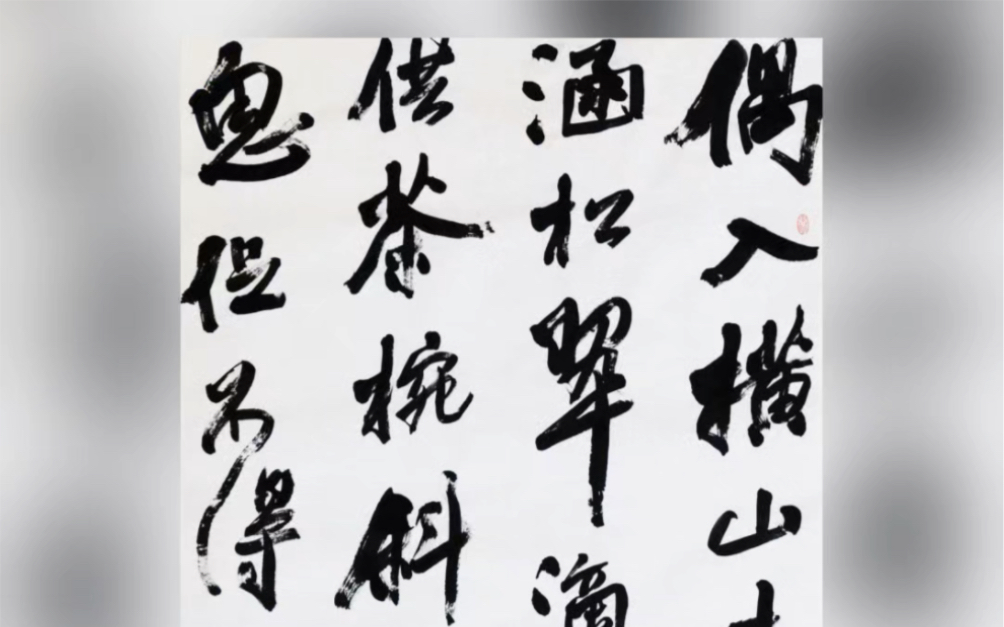 偶入横山
涵松翠滴
供茶椀斜
思促不得